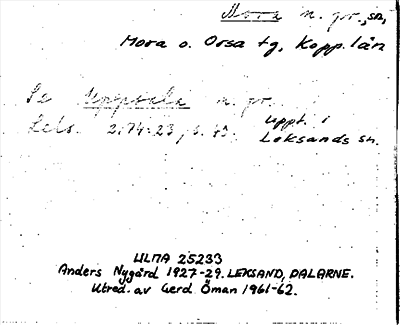 Mora n. pr., sn,
Mora o. Orsa tg, Kopp. län
Se Uppsala n. pr.
Leks. 2:74-23, s. 43. Uppt. i
Leksands sn.
ULMA 25233
Anders Nygård 1927-29. LEKSAND, DALARNE.
Utred. av Gerd Öman 1961-62.